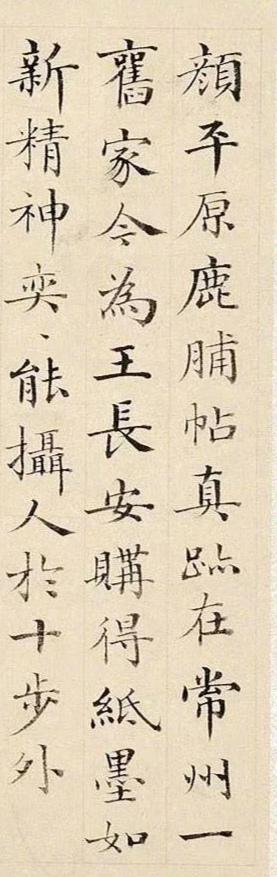 顔平原鹿脯帖真跡在常州一
舊家今為王長安購得紙墨如
新精神奕〻能攝人於十步外